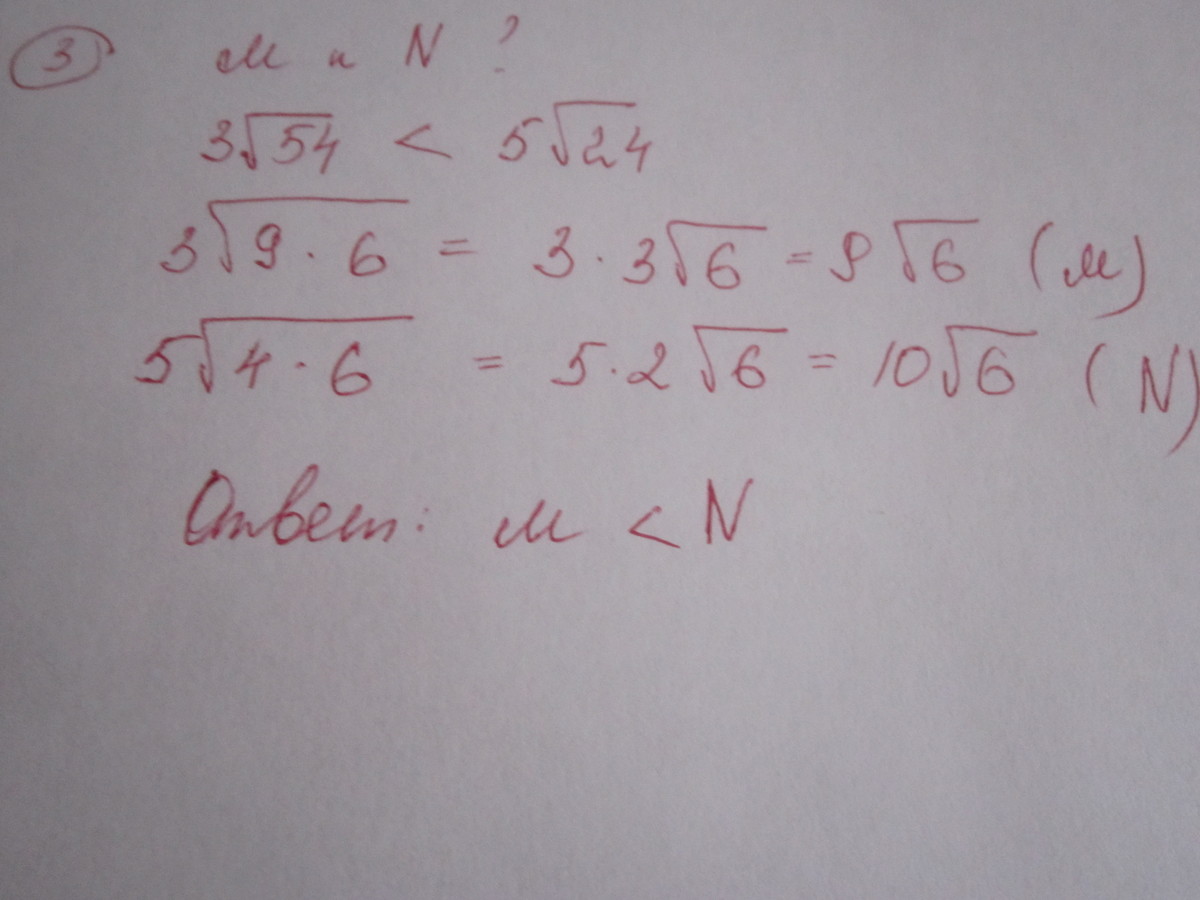 ③ М и N ?
3√54 < 5√24
3√9·6 = 3·3√6 = 9√6 (м)
5√4·6 = 5·2√6 = 10√6 (N)
Ответ: М < N